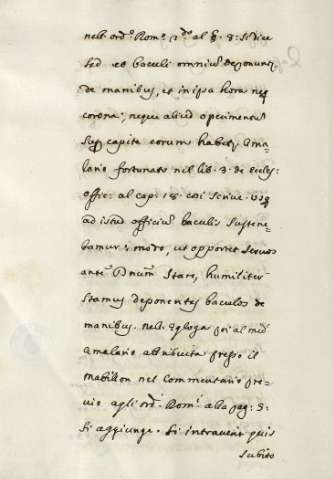 nell' ord.e Rom.o 2.do al §. 8: si dice
sed et baculi omnium deponunt.r
de manibus, et in ipsa hora neq
corona; neque aliud operimentum
super capita eorum habet.r Ama-
lario fortunato nel lib. 3. de eccles:
offic: al cap. 18. così scrive. Usq
ad istud officium baculis susten-
tabamur: modo, ut oportet servos
ante Dnum stare, humiliter
stamus deponentes baculos de
manibus. nell' egloga poi al med.
Amalario attribuita presso il
Mabillon nel commentario pre-
vio agli ord.i Rom.i alla pag: 5:
si aggiunge. Si intraverit quis
subito